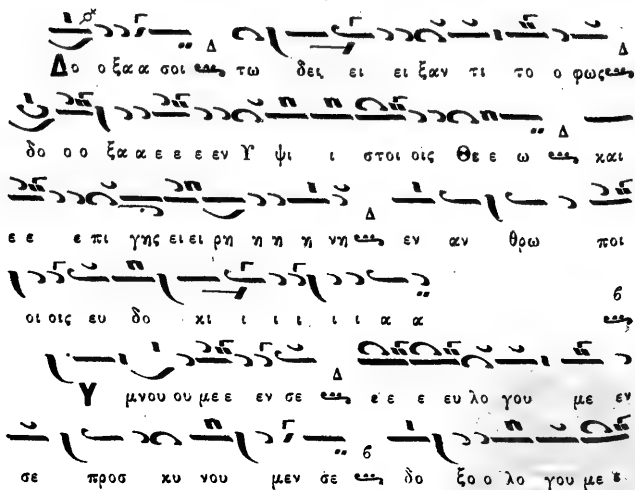 Δο ο ξα α σοι τω δει ει ει ξαν τι το ο φως
δο ο ο ξα α ε ε ε ε εν Υ ψι ι στοι οις Θε ε ω και
ε ε ε πι γης ει ει ρη η η η νη εν αν θρω ποι
οι οις ευ δο κι ι ι ι ι α α
Υ μνου ου με ε εν σε ε ε ε ευ λο γου με εν
σε προσ κυ νου μεν σε δο ξο ο λο γου με